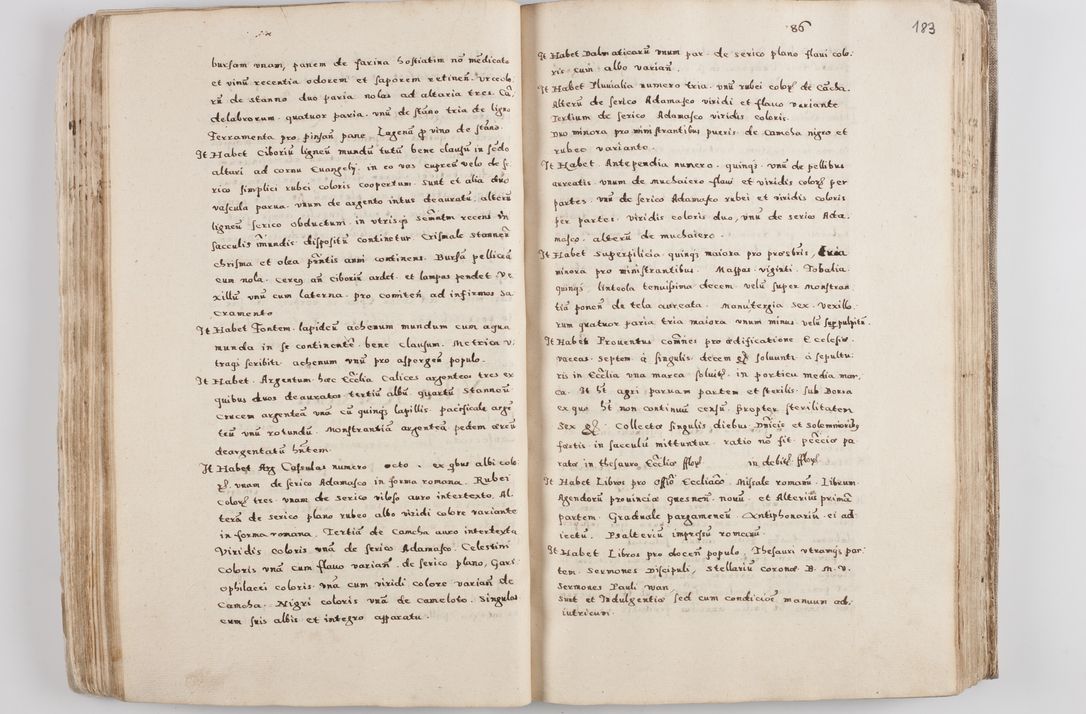 bursam vnam, panem de farina hostiatim nō mēdicato
et vinū recentia odorem et saporem retinen̄. Vrceolo
rū de stanno duo paria nolas ad altaria tres. Cā
delabrorum quatuor paria. vnū de stāno tria de ligno
Ferramenta pro pinsan̄ pane. Lagenā p vino de stāno.
It Habet Ciboriū ligneū mundū tutū bene clausū in sēdo
altari ad cornu Euangelij. in eo vas cupreū velo de se
rico simplici rubei coloris coopertum. Sunt et alia duo
vascula parua. vnum de argento intus deauratū. alterū
ligneū serico obductum. in vtrisq sacramentū recens in
sacculis mundis dispositū continetur. Crismale stanneū
chrisma et olea pn̄tis anni continens. Bursā pelliceā
cum nola. Cereq an̄ ciboriū ardet. et lampas pendet Ve
xillū vnū cum laterna. pro comiten̄ ad infirmos Sa
cramento
It Habet Fontem lapideū achenum mundum cum aqua
munda in se continentē. bene clausum. Metrica v
tragi scribitr. achenum vnū pro aspergen̄ populo.
It Habet. Argentum hæc Ecclia Calices argenteos tres ex
quibus duos deauratos tertiū albū. quartū Stanneū
Crucem argenteā vnā cū quinq lapillis. pacificale argē
teū vnū rotundū. Monstrantiā argenteā pedem æreū
deargentatū hn̄tem.
It Habet Arg Casulas numero octo. ex qbus albi colo
ꝝ. vnam de serico Adamasco in forma romana. Rubei
Coloꝝ tres. vnam de serico viloso auro intertexto. Al
terū de serico plano rubeo albo viridi colore variante
in forma romana. Tertiā de Camcha auro intertexta
Viridis coloris vnā de serico Adamasco. Celestini
Coloris vnā cum flauo varian̄. de serico plano, Gari
ophilacei coloris vna cum viridi colore varian̄ de
Camcha. Nigri coloris vnā de Cameloto. Singulas
cum suis albis et integro apparatu.
86
183
It Habet Dalmaticarū vnum par de serico plano flaui colo
ris cum albo varian̄.
It Habet Pluuialia numero tria. vnū rubei coloꝝ de Cācha.
Alterū de serico Adamasco viridi et flauo variante
Tertium de serico Adamasco viridis coloris.
Duo minora pro ministrantibus pueris de Camcha nigro et
rubeo variante.
It Habet. Antependia numero. quinq vnū de pellibus
aureatis. vnum de muchaiero flaui et viridis coloꝝ per
partes. vnū de serico Adamasco rubei et viridis coloris
per partes. Viridis coloris duo, vnū de serico Ada
masco. alterū de muchaiero.
It Habet Superpilicia quinq maiora pro prosbris, tria
minora pro ministrantibus. Mappas viginti. Tobalia
quinq. linteola tenuissima decem. velū super monstran
tiā ponen̄ de tela aureata. Manutergia sex. Vexillo
rum quatuor paria tria maiora vnum minus. velū sup pulpitū.
It Habet Prouentus com̄nes pro ædificatione Ecclesiæ
vaccas Septem à singulis decem gꝝ soluunti à sepultu
ris in Ecclia vna marca soluitꝝ. in porticu media mar
ca. It ht agri paruam partem et sterilis sub Borsa
ex quo ht non continuū censū. propter sterilitatem
Sex gꝝ. Collecta singulis diebus Dn̄icis et Solemnioribus
festis in sacculū mittuntur. ratio nō fit peccia pa
rata in thesauro Eccliæ flloꝝ in debitꝝ flloꝝ
It Habet Libros pro offō Eccliaco. Missale romanū. Librum
Agendorū prouinciæ quesnen̄. nouū. et Alteriū primā
partem. Graduale pargameneū. Antiphonariū. ei ad
iectū. Psalteriū impressū romanū.
It Habet Libros pro docen̄ populo. Thesauri vtramq par
tem. Sermones Discipuli, Stellariū coronæ B. M. V.
Sermones Pauli wan.
Sunt et Indulgentiæ sed cum condicioē manuum ad
iutricum.